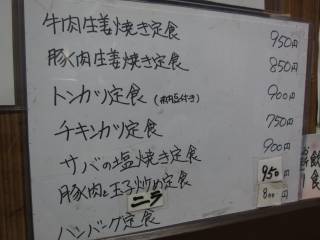 牛肉生姜焼き定食 950円
豚肉生姜焼き定食 850円
トンカツ定食 900円
チキンカツ定食 750円
サバの塩焼き定食 900円
豚肉と玉子炒め定食 950
ニラ 800
ハンバーグ定食